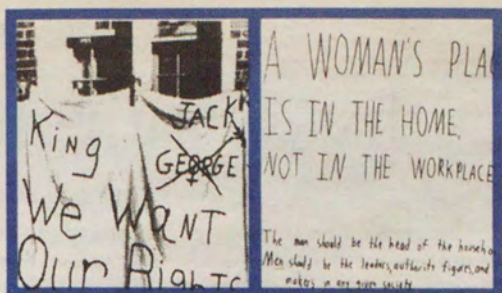 King
JACK
GEORGE
We Want
Our Rights
A WOMAN'S PLAC
IS IN THE HOME,
NOT IN THE WORKPLACE
The man should be the head of the househo
Men should be the leaders, authority figures, and
makers in any given society.